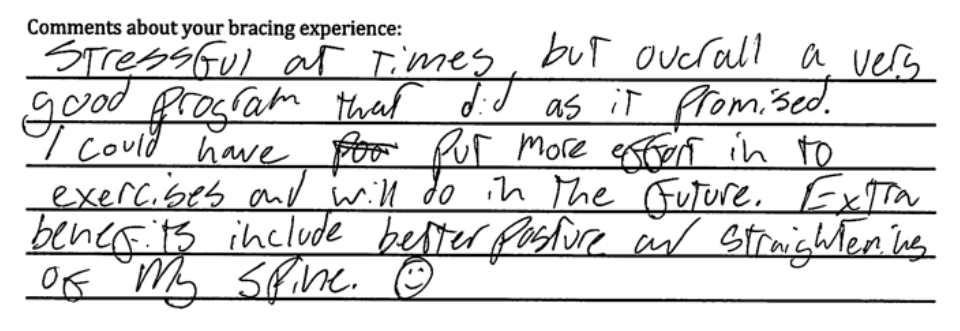 Comments about your bracing experience:
Stressful at times, but overall a very
good program that did as it promised.
I could have put more effort in to
exercises and will do in the future. Extra
benefits include better posture and straightening
of my spine. ☺